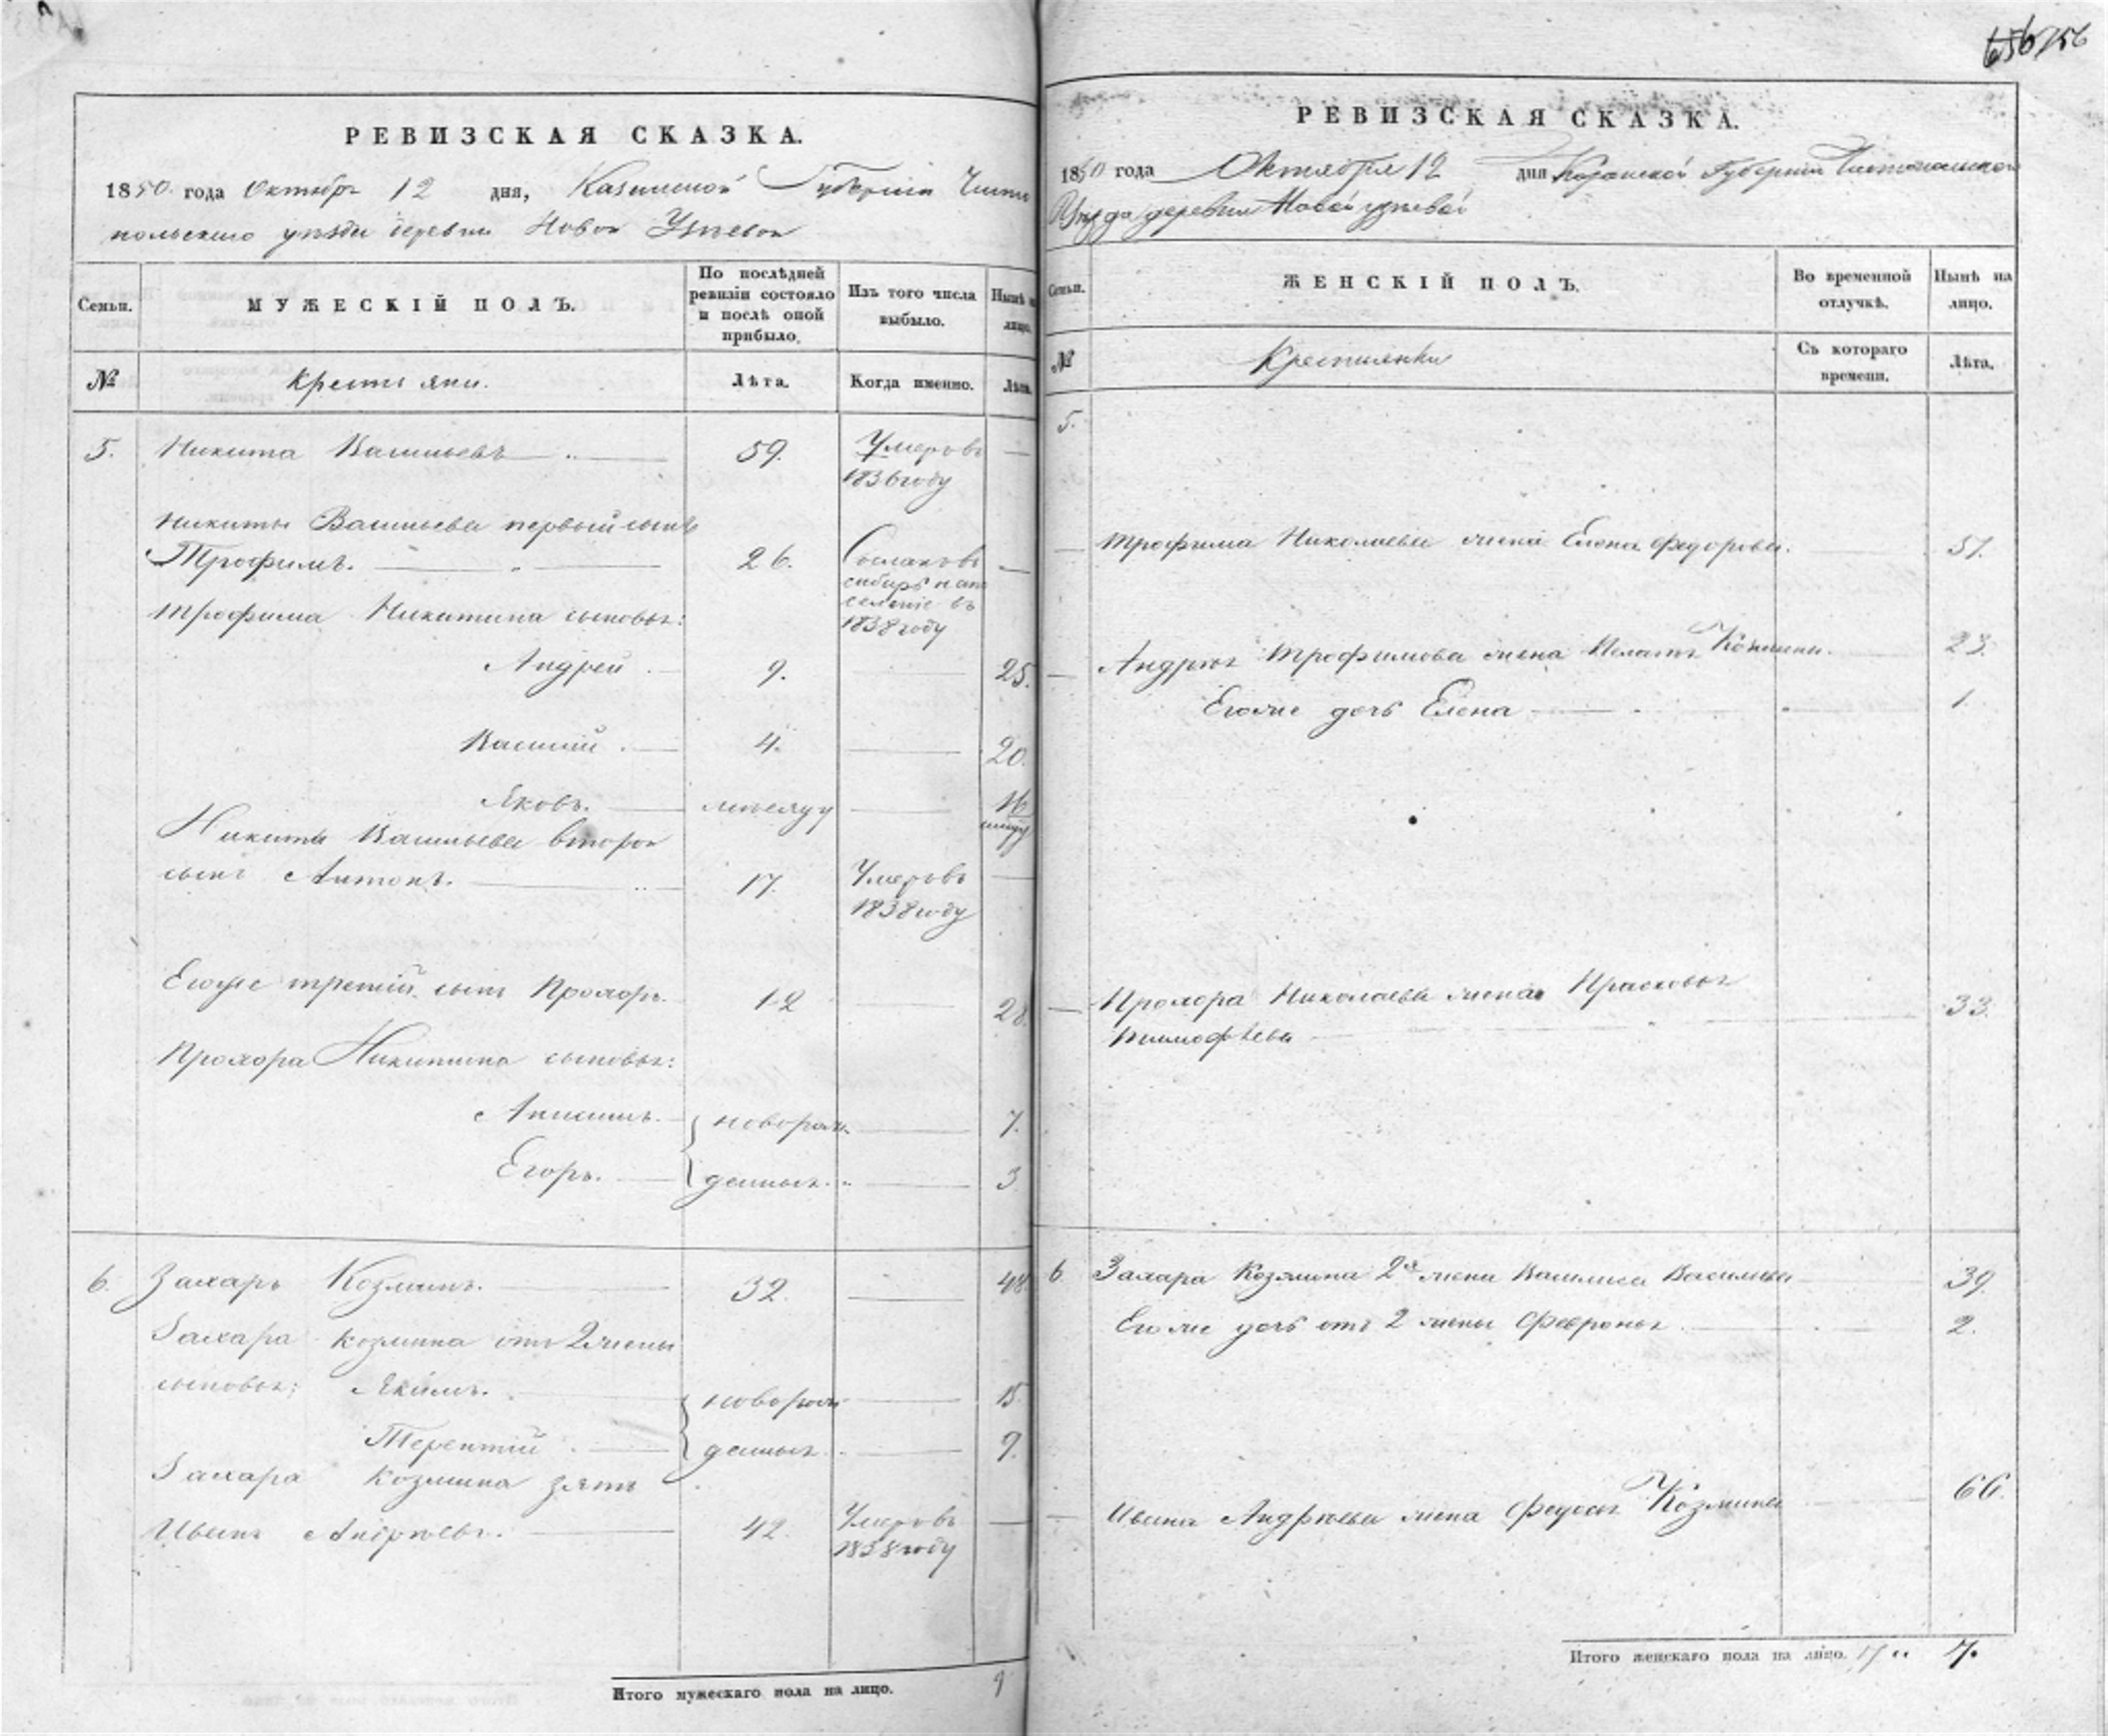 656 156
РЕВИЗСКАЯ СКАЗКА.
1850 года Октября 12 дня, Казанской Губернiи Чисто
польскаго уѣзда деревни Новой Узѣевой
Семьи.
МУЖЕСКІЙ ПОЛЪ.
По послѣдней ревизіи состояло и послѣ оной прибыло.
Изъ того числа выбыло.
Нынѣ на лицо.
№
Крестьяне.
Лѣта.
Когда именно.
Лѣта.
5. Никита Васильевъ 59. Умеръ въ —
1836 году
Никиты Васильева первый сынъ
Трофимъ. 26. Сосланъ въ —
сибирь на по
селеніе въ
Трофима Никитина сыновья: 1838 году
Андрей 9. 25.
Василій 4. 20.
Яковъ. 16
Никиты Васильева второй
сынъ Антонъ. 17. Умеръ въ —
1838 году
Егоже третій сынъ Прохоръ. 12 28.
Прохора Никитина сыновья:
новорож 7.
Егоръ. денныя 3
6. Захаръ Козминъ. 32. 48.
Захара Козмина отъ 2 жены
сыновья: Якимъ. новорож 15
Терентій денныя 9.
Захара Козмина зять
Иванъ Андрѣевъ. 42. Умеръ въ —
1838 году
Итого мужескаго пола на лицо. 9
РЕВИЗСКАЯ СКАЗКА.
1850 года Октября 12 дня Казанской Губерніи Чистопольскаго
Уѣзда деревни Новой узѣевой
Семьи.
ЖЕНСКІЙ ПОЛЪ.
Во временной отлучкѣ.
Нынѣ на лицо.
№
Крестьянки
Съ котораго времени.
Лѣта.
5.
— Трофима Николаева жена Елена Федорова. 51.
— Андрея Трофимова жена 23.
Егоже дочь Елена 1.
— Прохора Николаева жена Прасковья 33.
Тимофѣева
6 Захара Козмина 2я жена Василиса Васильева 39.
Егоже дочь отъ 2 жены Февронья 2.
— Ивана Андрѣева жена Федосья Козмина 66.
Итого женскаго пола на лицо. 7.